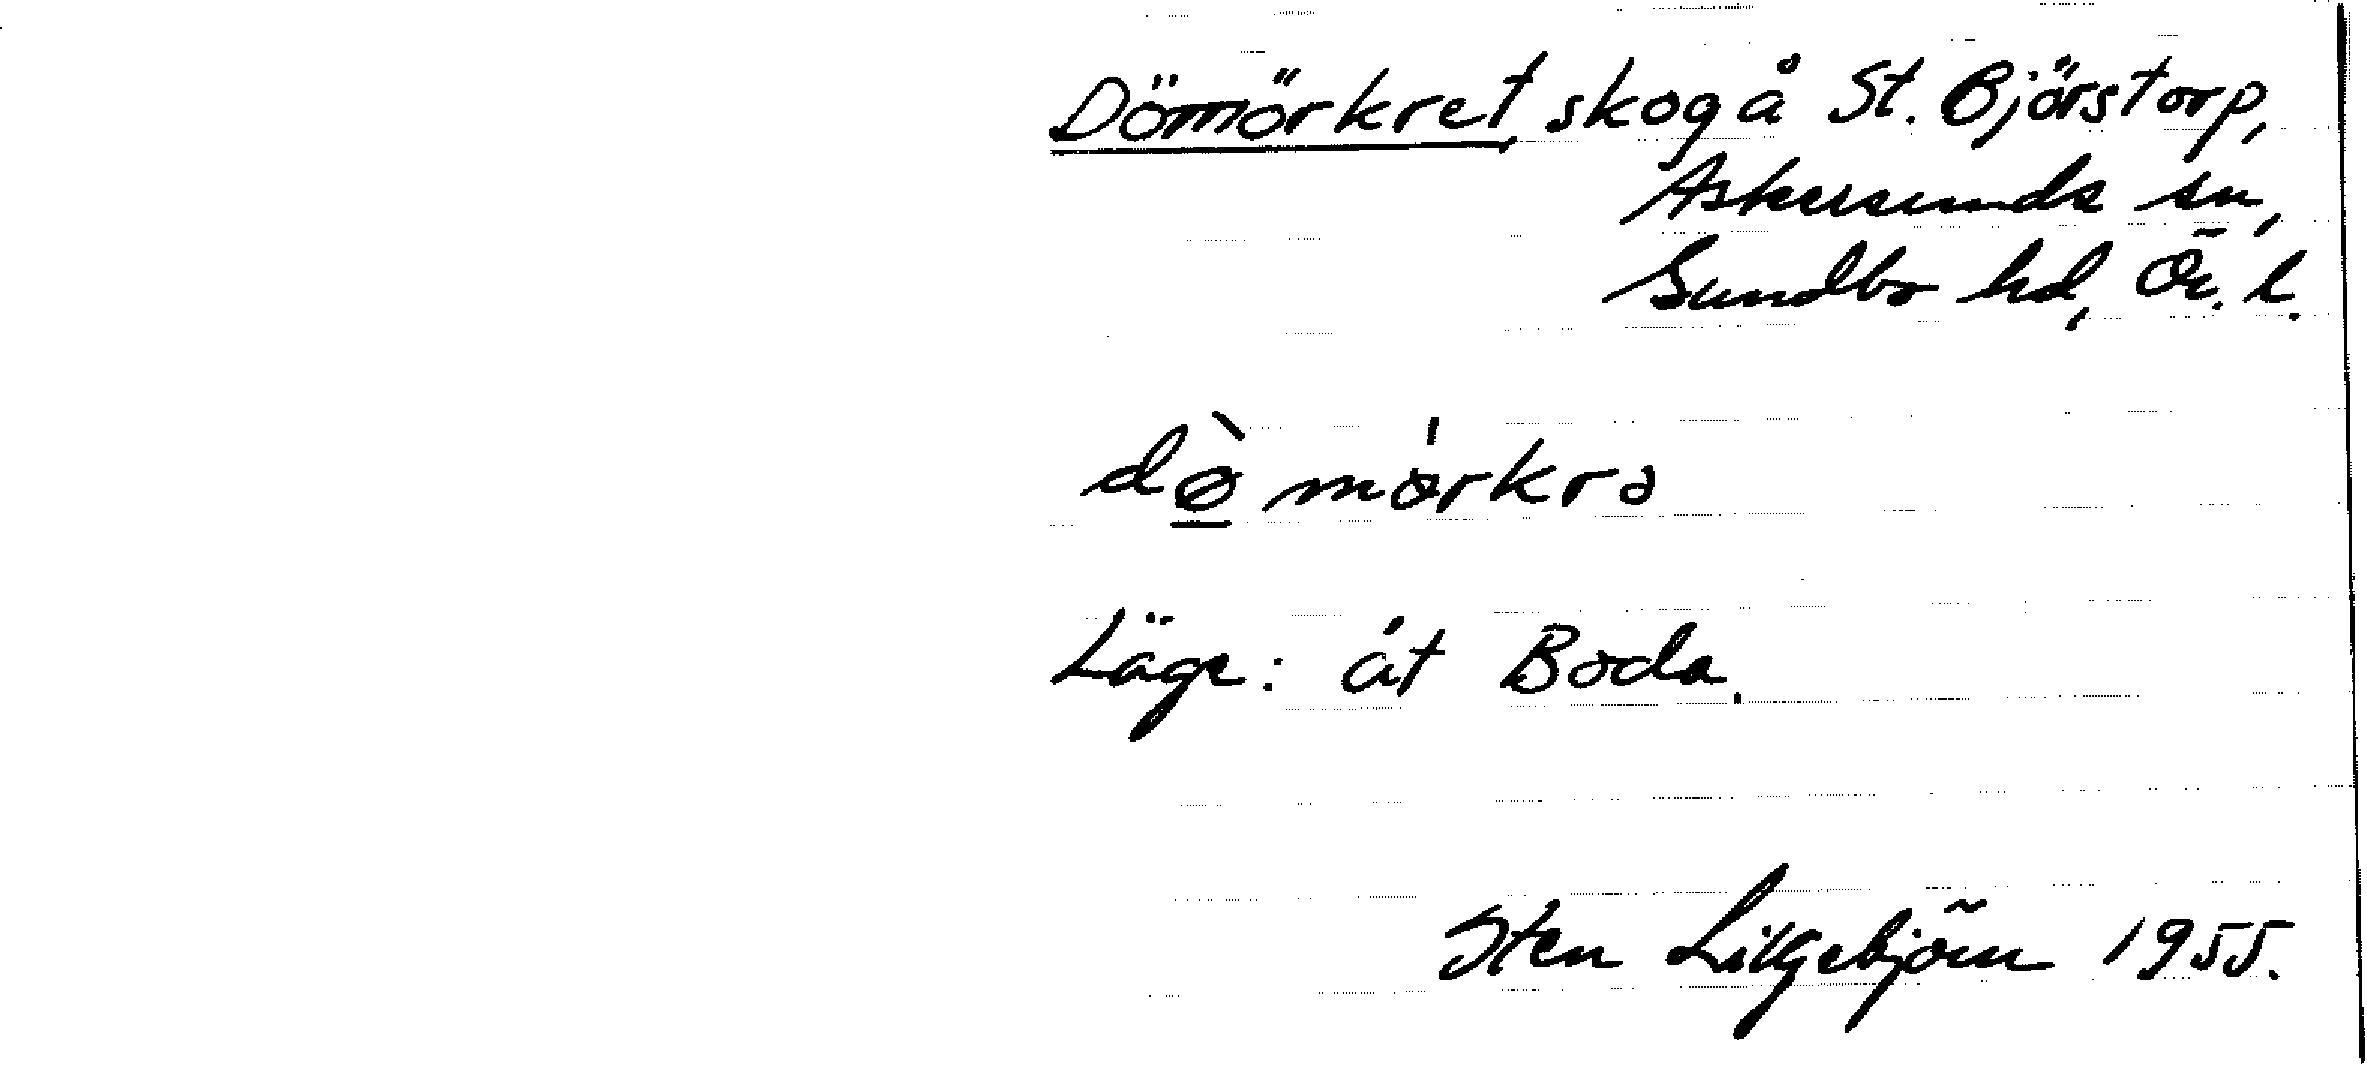 Dömörkret, skog å St. Björstorp,
Askersunds sn,
Sundbo hd, Ör. l.
dø̱̀ mø̍rkrə
Läge: åt Boda.
Sten Liljebjörn 1955.